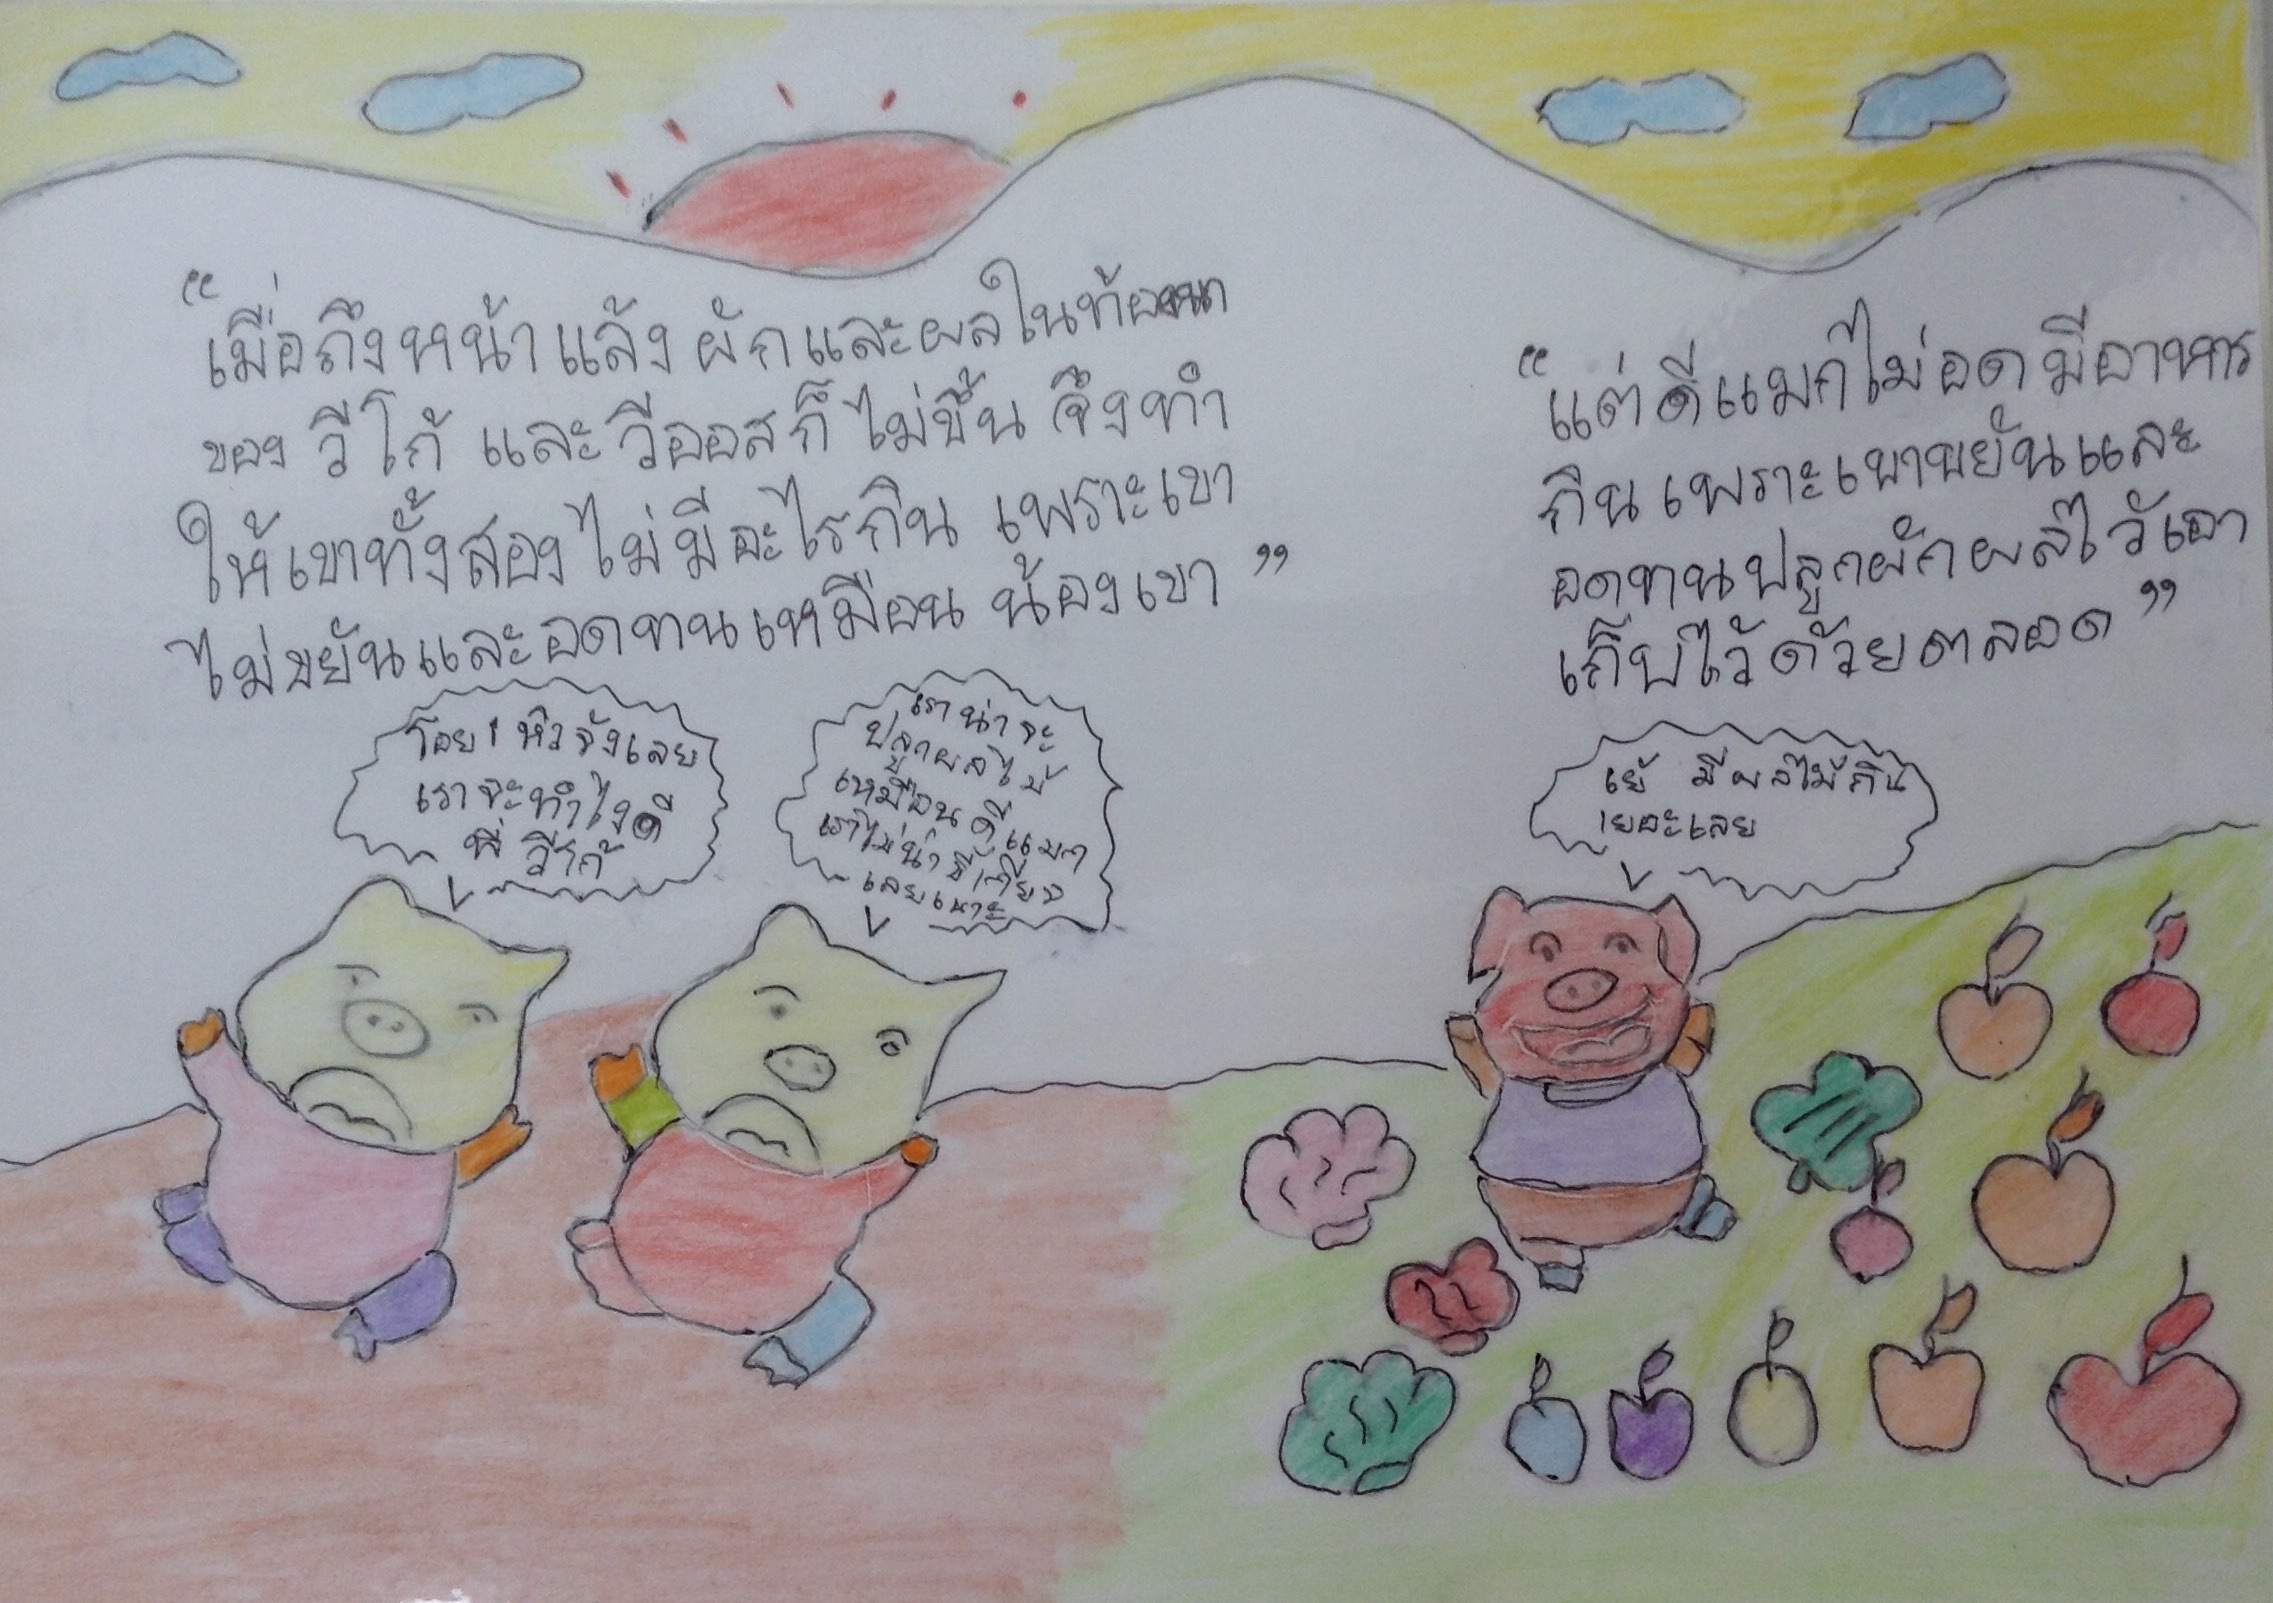 “เมื่อถึงหน้าแล้ง ผักและผลในท้องนา
ของ วีโก้ และ วีออสก็ไม่ขึ้น จึงทำ
ให้เขาทั้งสองไม่มีอะไรกิน เพราะเขา
ไม่ขยันและอดทนเหมือน น้องเขา”
“แต่ดีแมกไม่อด มีอาหาร
กินเพราะเขาขยันและ
อดทนปลูกผักผลไว้เอา
เก็บไว้ด้วยตลอด”
โอย! หิวจังเลย
เราจะทำไงดี
พี่ วีโก้
เราน่าจะ
ปลูกผลไม้
เหมือน ดีแมก
เราไม่น่าขี้เกียจ
เลยเนาะ
เย้ มีผลไม้กิน
เยอะเลย